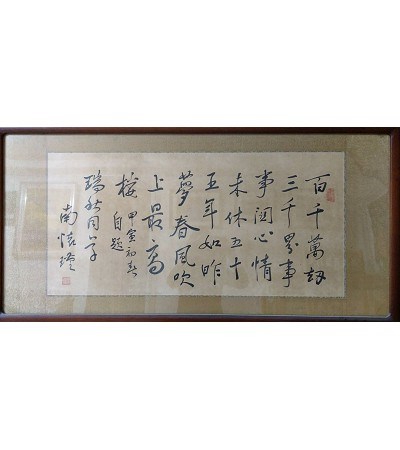 百千萬劫
三千界事
事関心情
未休五十
五年如昨
夢春風吹
上最高
樓 甲寅初春
自題
瑞秋同学
南懷瑾